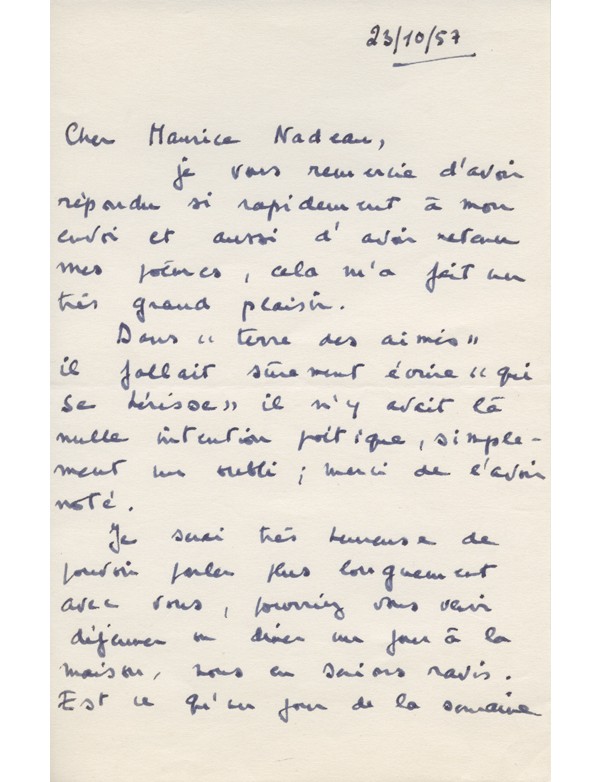 23/10/57
Cher Maurice Nadeau,
je vous remercie d'avoir
répondu si rapidement à mon
envoi et aussi d'avoir retenu
mes poèmes, cela m'a fait un
très grand plaisir.
Dans "terre des aimés"
il fallait sûrement écrire "qui
se hérisse" il n'y avait là
nulle intention poétique, simple-
ment un oubli ; merci de l'avoir
noté.
Je serai très heureuse de
pouvoir parler plus longuement
avec vous, pourriez vous venir
déjeuner ou diner un jour à la
maison, nous en serions ravis.
Est ce qu'un jour de la semaine